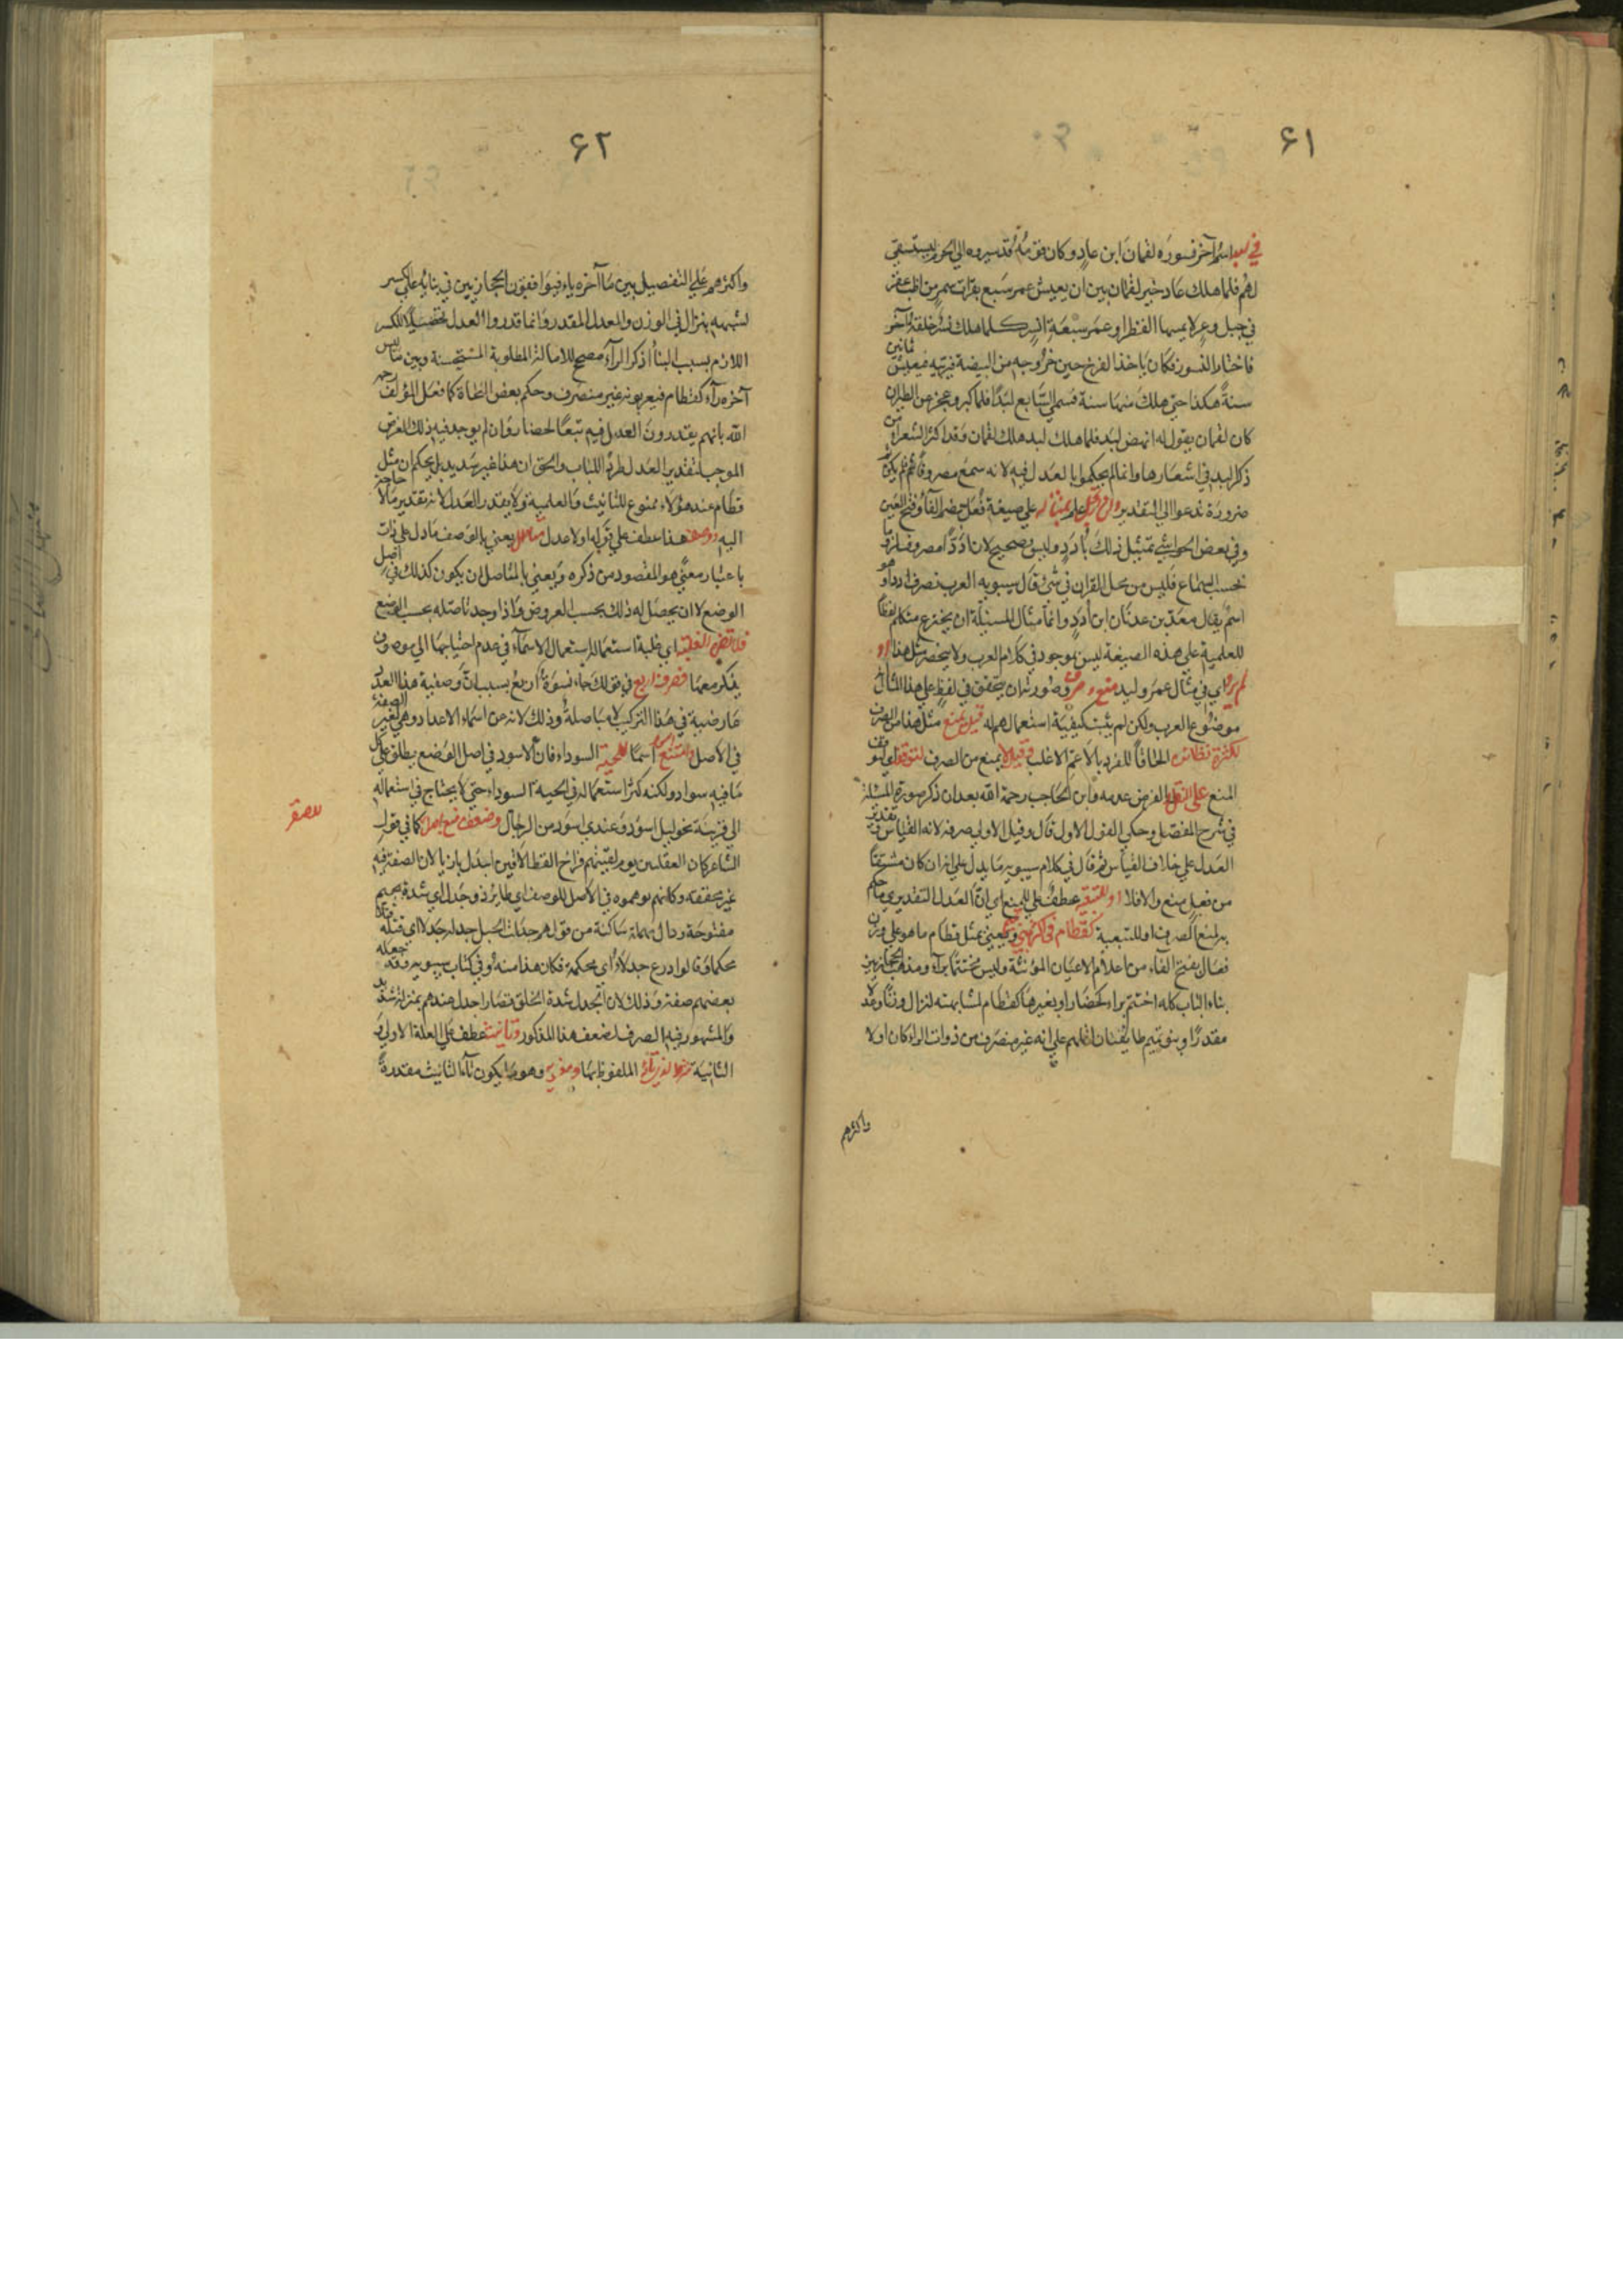 ٦١
في لبد اسم آخر نسوره لقمان ابن عاد وكان قومه قد سيروه الي الحرم ليستسقي
لهم فلما هلك عاد خير لقمان بين ان يعيش عمر سبع بقرات سمر من اظب عفر
في جبل وعر لا يمسها القطر او عمر سبعة انسر كلما هلك نسر خلفه آخر
فاختار النسور فكان ياخذ الفرخ حين خروجه من البيضة فيربيه فيعيش ثمانين
سنة هكذا حتي هلك منها ستة فسمي السابع لبدا فلما كبر وعجز عن الطيران
كان لقمان يقول له انهض لبد فلما هلك لبد هلك لقمان وقد اكثر الشعراء من
ذكر لبد في اشعارها وانما لم يحكموا بالعدل فيه لانه سمع مصروفا فلم يكن
ضرورة تدعو الي التقدير علم علي صيغة فعل بضم الفاء وفتح العين
وفي بعض الحواشي تمثيل ذلك بأدد وليس بصحيح لان أددا مصروف
بحسب السماع فليس من محل القران في شئ قال سيبويه العرب تصرف اددا وهو
اسم يقال معد بن عدنان ابن أدد وانما مثال المسئلة ان يخترع متكلم لفظا
للعلمية علي هذه الصيغة ليس بموجود في كلام العرب ولا يخصه مثل هذا او
اي في مثال عمر ولبد منع وصورته ان يتحقق في لفظ علي هذا المثال
موضوع العرب ولكن لم يثبت كيفية استعمالهم له قيل يمنع مثل هذا من الصرف
لكثرة نظائره الحاقا للفرد بالاعم الاغلب وقيل لا يمنع من الصرف لتوقف
المنع علي النقل والفرض عدمه وابن الحاجب رحمة الله بعد ان ذكر صورة المسئلة
في شرح المفصل وحكي القول الاول قال وقيل الاولي صرفه لانه القياس تقدير
العدل علي خلاف القياس ثم قال في كلام سيبويه ما يدل علي انه ان كان مشتقا
من فعل منع والا فلا او للتبعية عطف علي للمنع اي ان العدل التقديري ما حكم
به لمنع الصرف او للتبعية كقطام في اكثر يعني بمثل قطام ما هو علي وزن
فعال بفتح الفاء من اعلام الاعيان المؤنثة وليس مختتما براء ومذهب الحجازيين
بناء الباب كله اختتم براء كحضار او بغيرها كقطام لمشابهته لنزال وزنا وعدلا
مقدرا وبنو تميم طايفتان اقلهم علي انه غير منصرف من ذوات الراء كان او لا
واكثرهم
٦٢
واكثرهم علي التفصيل بين ما آخره راء فيوافقون الحجازيين في بنائه علي الكسر
لشبهه بنزال في الوزن والعدل المقدر وانما قدروا العدل تحصيلا للكسر
اللازم بسبب البناء اذ كسر الراء مصحح للامالة المطلوبة المستحسنة وبين ما ليس
آخره راء كقطام فيعربونه غير منصرف وحكم بعض النحاة كما فعل المؤلف رحمه
الله بانهم يقدرون العدل فيه تبعا لحضار وان لم يوجد فيه ذلك الغرض
الموجب لتقدير العدل طردا للباب والحق ان هذا غير سديد بل يحكم ان مثل
قطام عند هؤلاء ممنوع للتانيث والعلمية ولا يقدر العدل لانه تقدير ما لا حاجة
اليه ووصف هذا عطف علي قوله اولا عدل متاصل يعني بالوصف ما دل علي ذات
باعتبار معني هو المقصود من ذكره ويعني بالمتاصل ان يكون كذلك في اصل
الوضع لا ان يحصل له ذلك بحسب العروض واذا وجد تاصله بحسب الوضع
فلا تضر الغلبة اي غلبة استعماله استعمال الاسماء في عدم احتياجها الي موصوف
يذكر معها فصرف اربع في قولك جاء نسوة اربع بسبب ان وصفية هذا العدد
عارضية في هذا التركيب لا باصلة وذلك لانه من اسماء الاعداد وهي غير الصفة
في الاصل وامتنع اسود اسما للحية السوداء فان الاسود في اصل الوضع يطلق علي كل
ما فيه سواد ولكنه كثر استعماله في الحية السوداء حتي لا يحتاج في استعماله
الي قرينة بخلاف ليل اسود وعندي اسود من الرجال وضعف منع اجدل كما في قول
الشاعر كان العقيليين يوم لقيتهم فراخ القطا لاقين اجدل بازيا لان الصفة فيه
غير محققة وكانهم توهموه في الاصل للوصف اي طاير ذو جدل اي شدة بجيم
مفتوحة ودال مهملة ساكنة من قولهم جدلت الحبل اجدله جدلا اي فتلته فتلا
محكما وقالوا درع جدلاء اي محكمة فكان هذا منه وفي كتاب سيبويه وقد جعله
بعضهم صفة وذلك لان الجدل شدة الخلق فصار اجدل عندهم بمنزلة شديد
والمشهور فيه الصرف لضعف هذا المذكور وتانيث عطف علي العلة الاولي
الثانية الملفوظ بها وهو ما يكون تاء التانيث مقدرة
للصقر